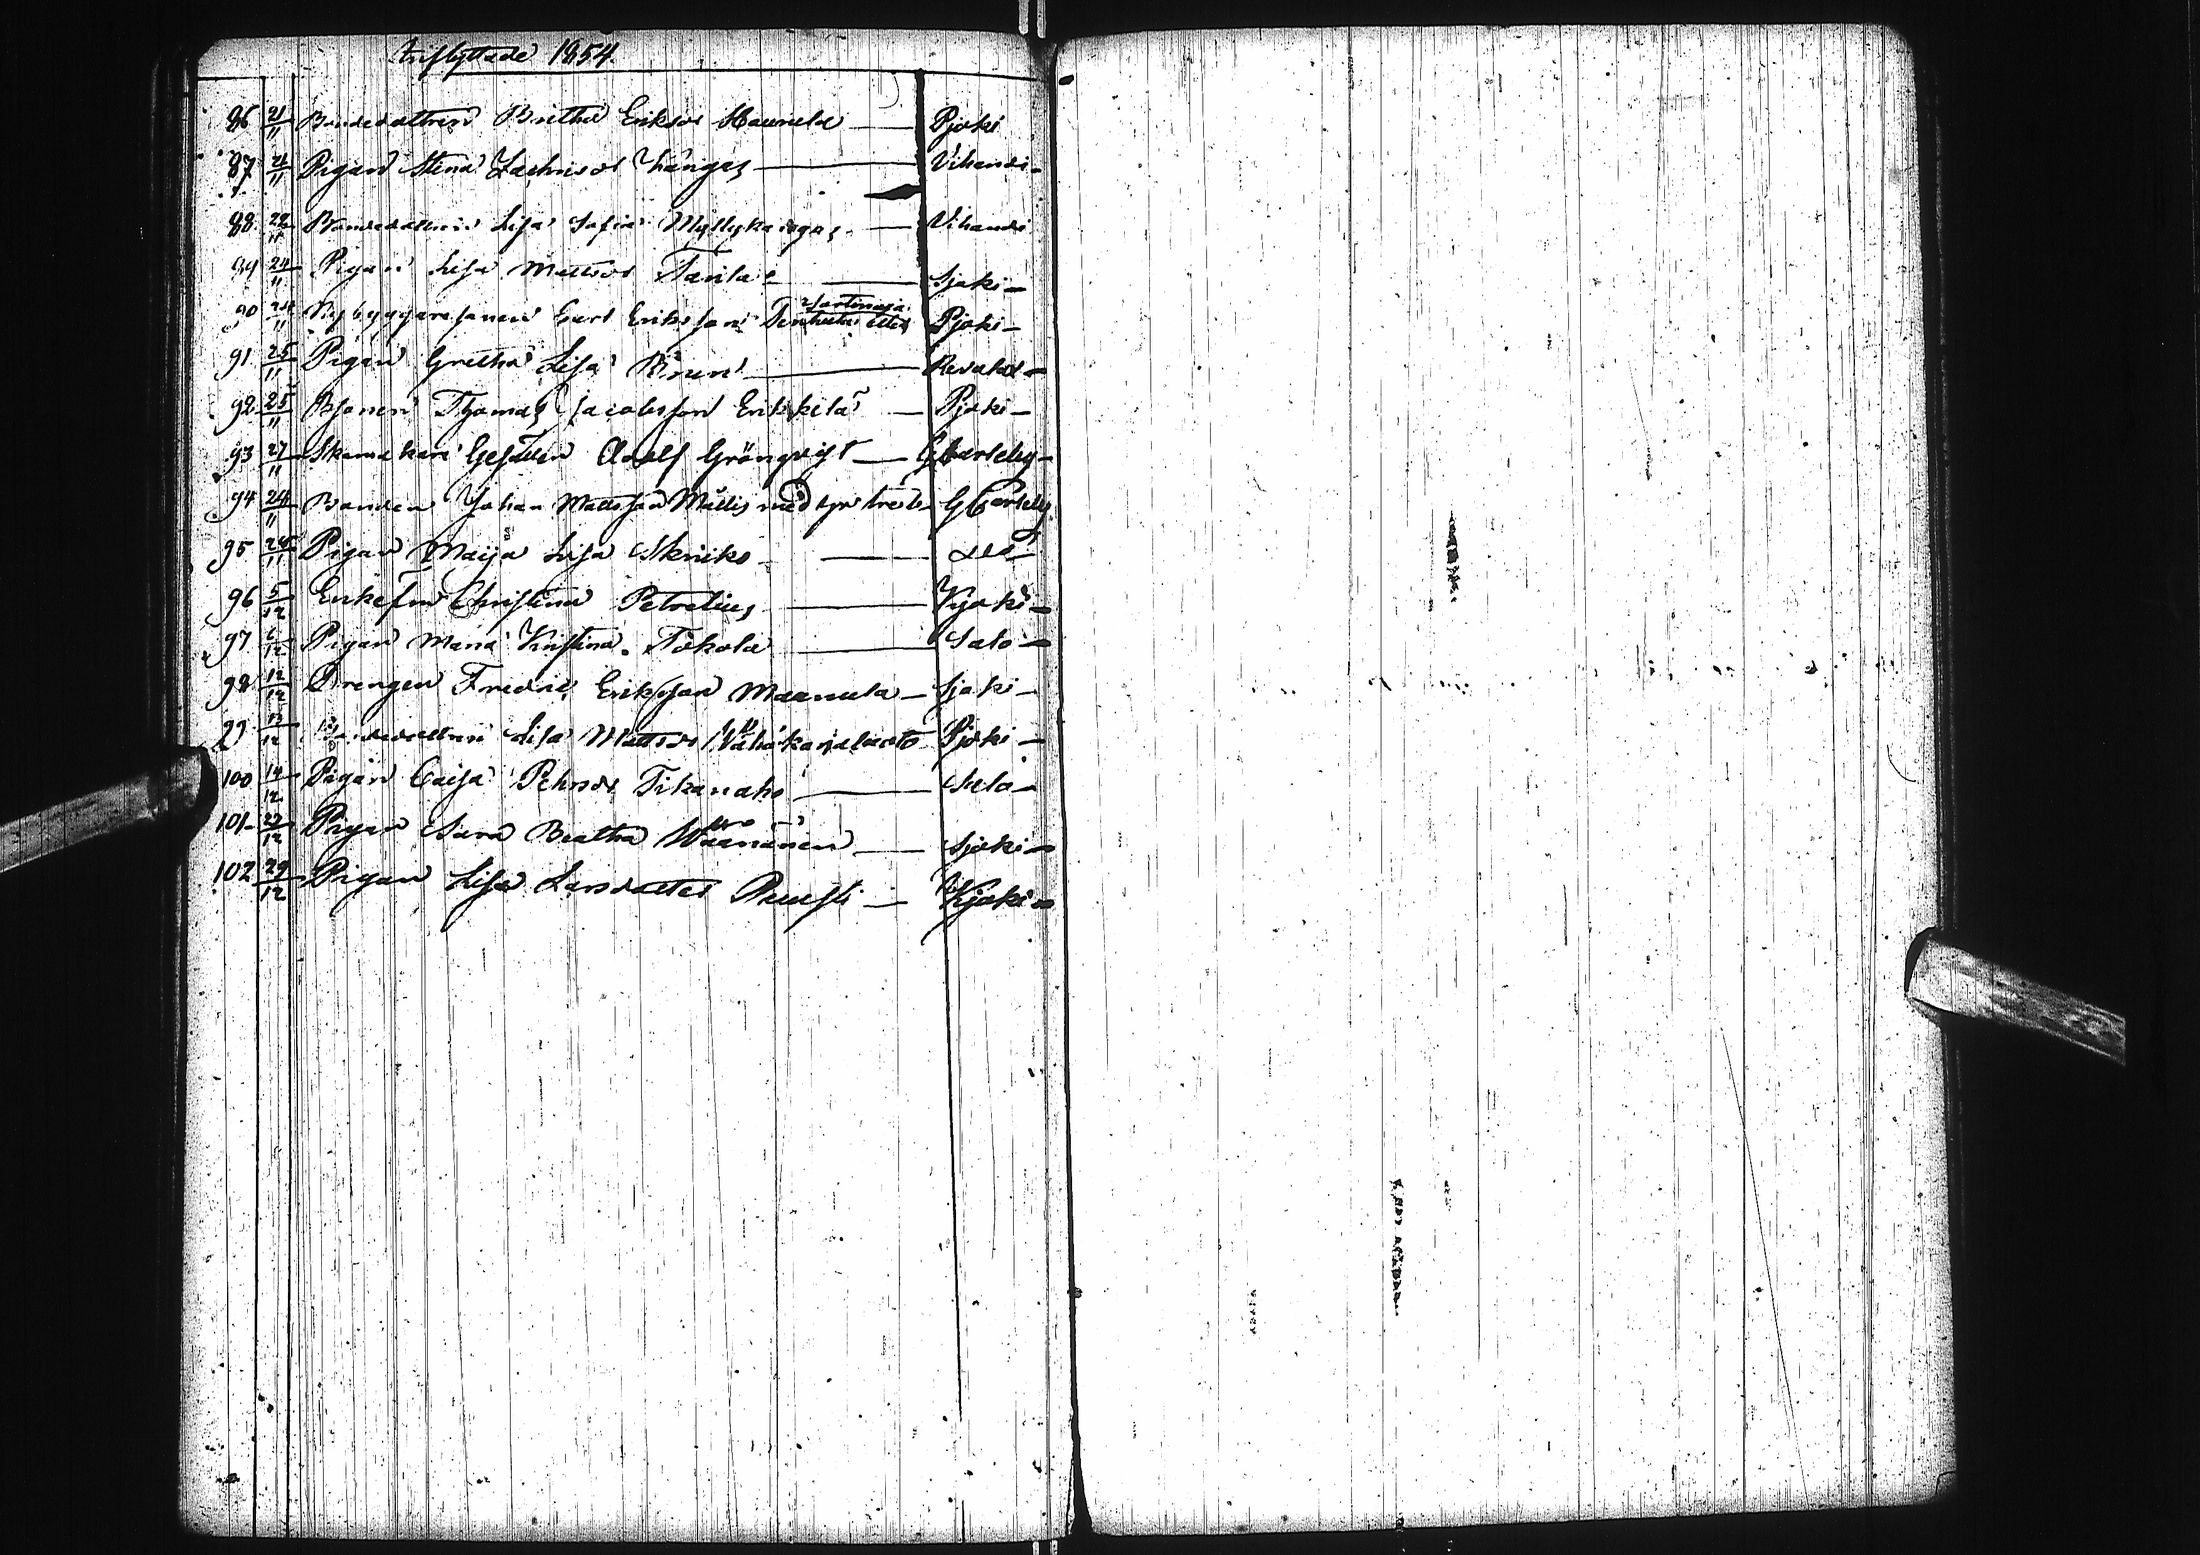 Inflyttade 1854.
86 21/11 Bondedottren Britha Eriksdr Haunula — Pjoki
87 21/11 Pigan Stina Zachrisdr Kangas — Vihandi -
88 22/11 Bondedottren Lisa Sofia Myllykangas — Vihandi
89 24/11 Pigan Lisa Mattsdr Tanila — Sjoki -
Yartimaja
90 24/11 Nybyggaresonen Carl Eriksson — Pjoki -
91 25/11 Pigan Gretha Lisa Brun — Revolax -
92 25/11 Bsonen Thomas Jacobsson Erikkilä — Pjoki -
93 27/11 Skomakare Gesällen Adolf Grönqvist — GCarleby -
94 24/11 Bonden Johan Mattsson Mattis med — GCarleby
95 24/11 Pigan Maija Lisa Skriko —
96 5/12 Enkefru Christina Petrelius — Kjoki -
97 6/12 Pigan Maria Kristina Tokola — Salo -
98 12/12 Drengen Fredric Eriksson Maanula — Sjoki -
99 13/12 Bondedottren Lisa Mattsdr Vähäkarjalaoto Pjoki -
100 14/12 Pigan Caisa Pehrsdr Tikanaho — Salo -
101 22/12 Pigan Sara Beatha Wäänänen — Sjoki -
102 29/12 Pigan Lisa Larsdotter — Kjoki -